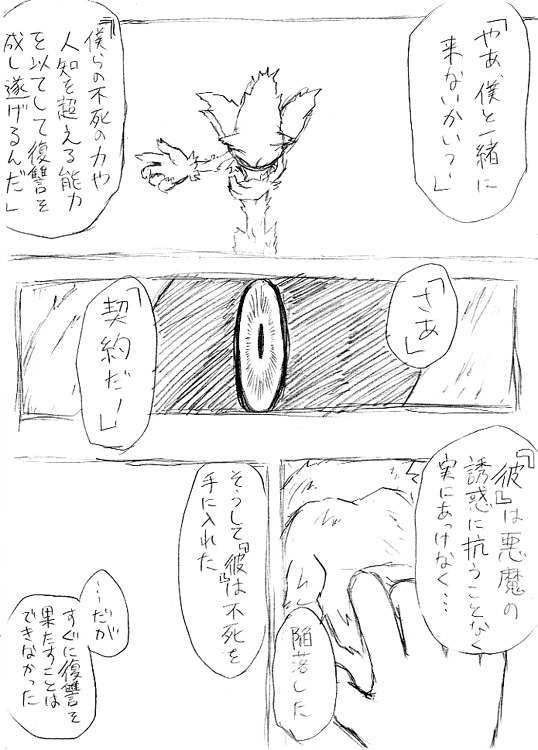 「やあ、僕と一緒に
来ないかいっ!」
「僕らの不死の力や
人知を超える能力
を以てして復讐を
成し遂げるんだ」
「さあ」
「契約だ!」
『彼』は悪魔の
誘惑に抗うことなく
実にあっけなく…
陥落した
そうして『彼』は不死を
手に入れた
……だが
すぐに復讐を
果たすことは
できなかった